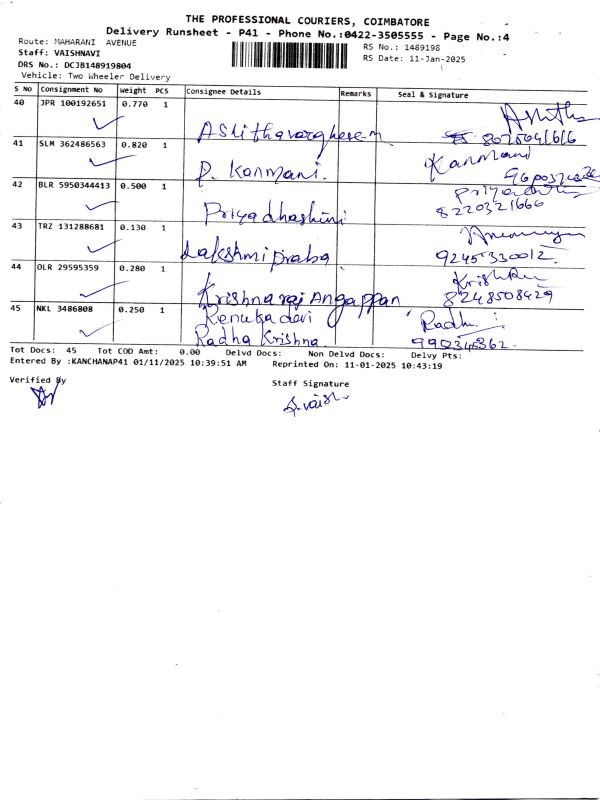 THE PROFESSIONAL COURIERS, COIMBATORE
Delivery Runsheet - P41 - Phone No.:0422-3505555 - Page No.:4
Route: MAHARANI AVENUE
RS No.: 1489198
Staff: VAISHNAVI
RS Date: 11-Jan-2025
DRS No.: DCJB148919804
Vehicle: Two Wheeler Delivery
S NO Consignment No Weight PCS Consignee Details Remarks Seal & Signature
40 JPR 100192651 0.770 1
41 SLM 362486563 0.820 1
P. Kanmani. Kanmani
42 BLR 5950344413 0.500 1
Priyadhashini 8220321666
43 TRZ 131288681 0.130 1
Lakshmi praba 9245330012
44 OLR 29595359 0.280 1
Krishnaraj Angappan 8248508429
45 NKL 3486808 0.250 1
Renukadevi
Radha Krishna
Tot Docs: 45 Tot COD Amt: 0.00 Delvd Docs: Non Delvd Docs: Delvy Pts:
Entered By :KANCHANAP41 01/11/2025 10:39:51 AM Reprinted On: 11-01-2025 10:43:19
Verified By Staff Signature